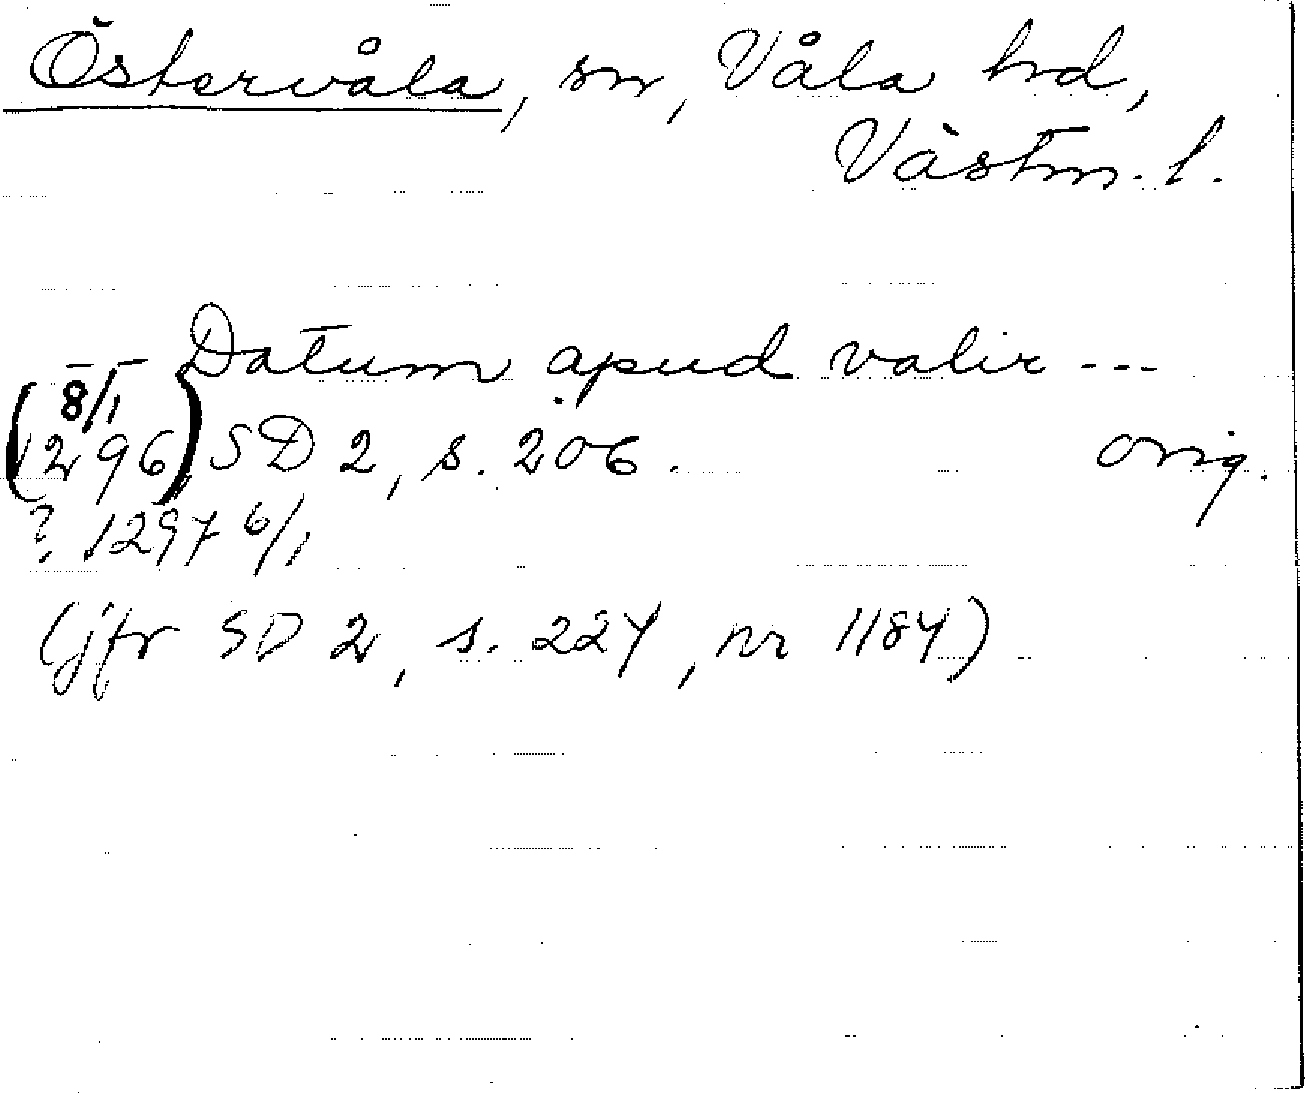 Östervåla, sn, Våla hd,
Västm. l.
Datum apud valir ---
(8/1 1296) SD 2, s. 206. orig.
? 1297 6/1
(jfr SD 2, s. 224, nr 1184)